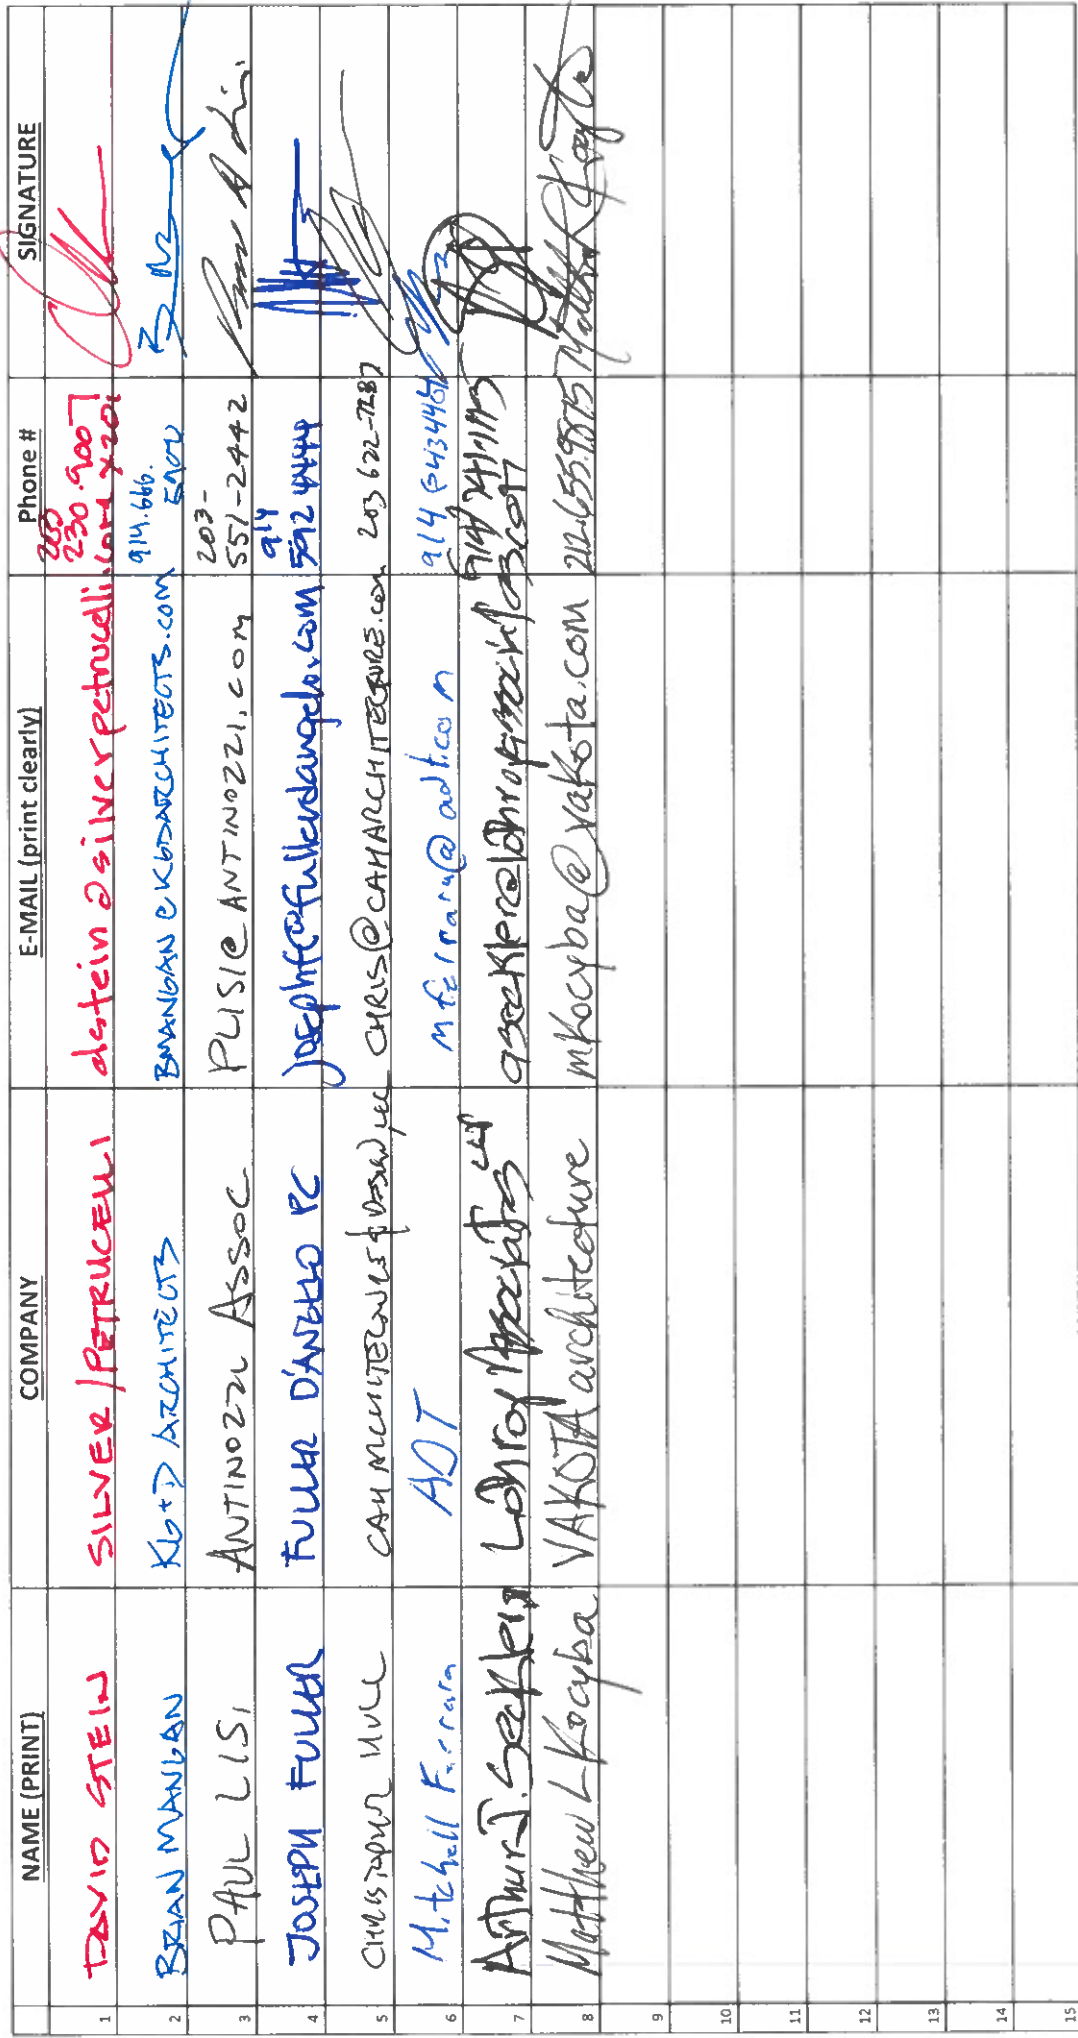 NAME (PRINT) COMPANY E-MAIL (print clearly) Phone # SIGNATURE
1 DAVID STEIN SILVER/PETRUCELLI dstein@silverpetrucelli.com 203 230.9007 x201
2 BRIAN MANGAN KG+D ARCHITECTS BMANGAN@KGDARCHITECTS.COM 914.666.5900
3 PAUL LISI ANTINOZZI ASSOC PLISI@ANTINOZZI.COM 203-551-2442
4 JOSEPH FULLER FULLER D'ANGELO PC josephf@fullerdangelo.com 914 592 4444
5 CHRISTOPHER HULL CAH ARCHITECTURE & DESIGN LLC CHRIS@CAHARCHITECTURE.COM 203 622-7287
6 Mitchell Ferrara ADT mferrara@adt.com 914
7 Arthur J. Seckler Lothrop Associates LLP 914
8 Matthew L Kocyba VAKOTA architecture mkocyba@vakota.com 212.655.9875
9
10
11
12
13
14
15